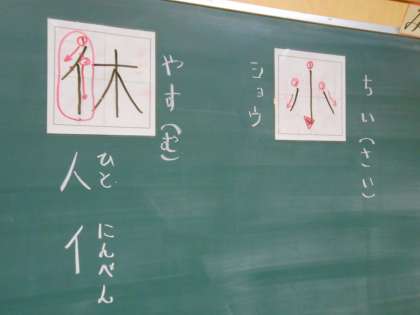 小
ちい(さい)
ショウ
休
やす(む)
人
ひと
亻
にんべん